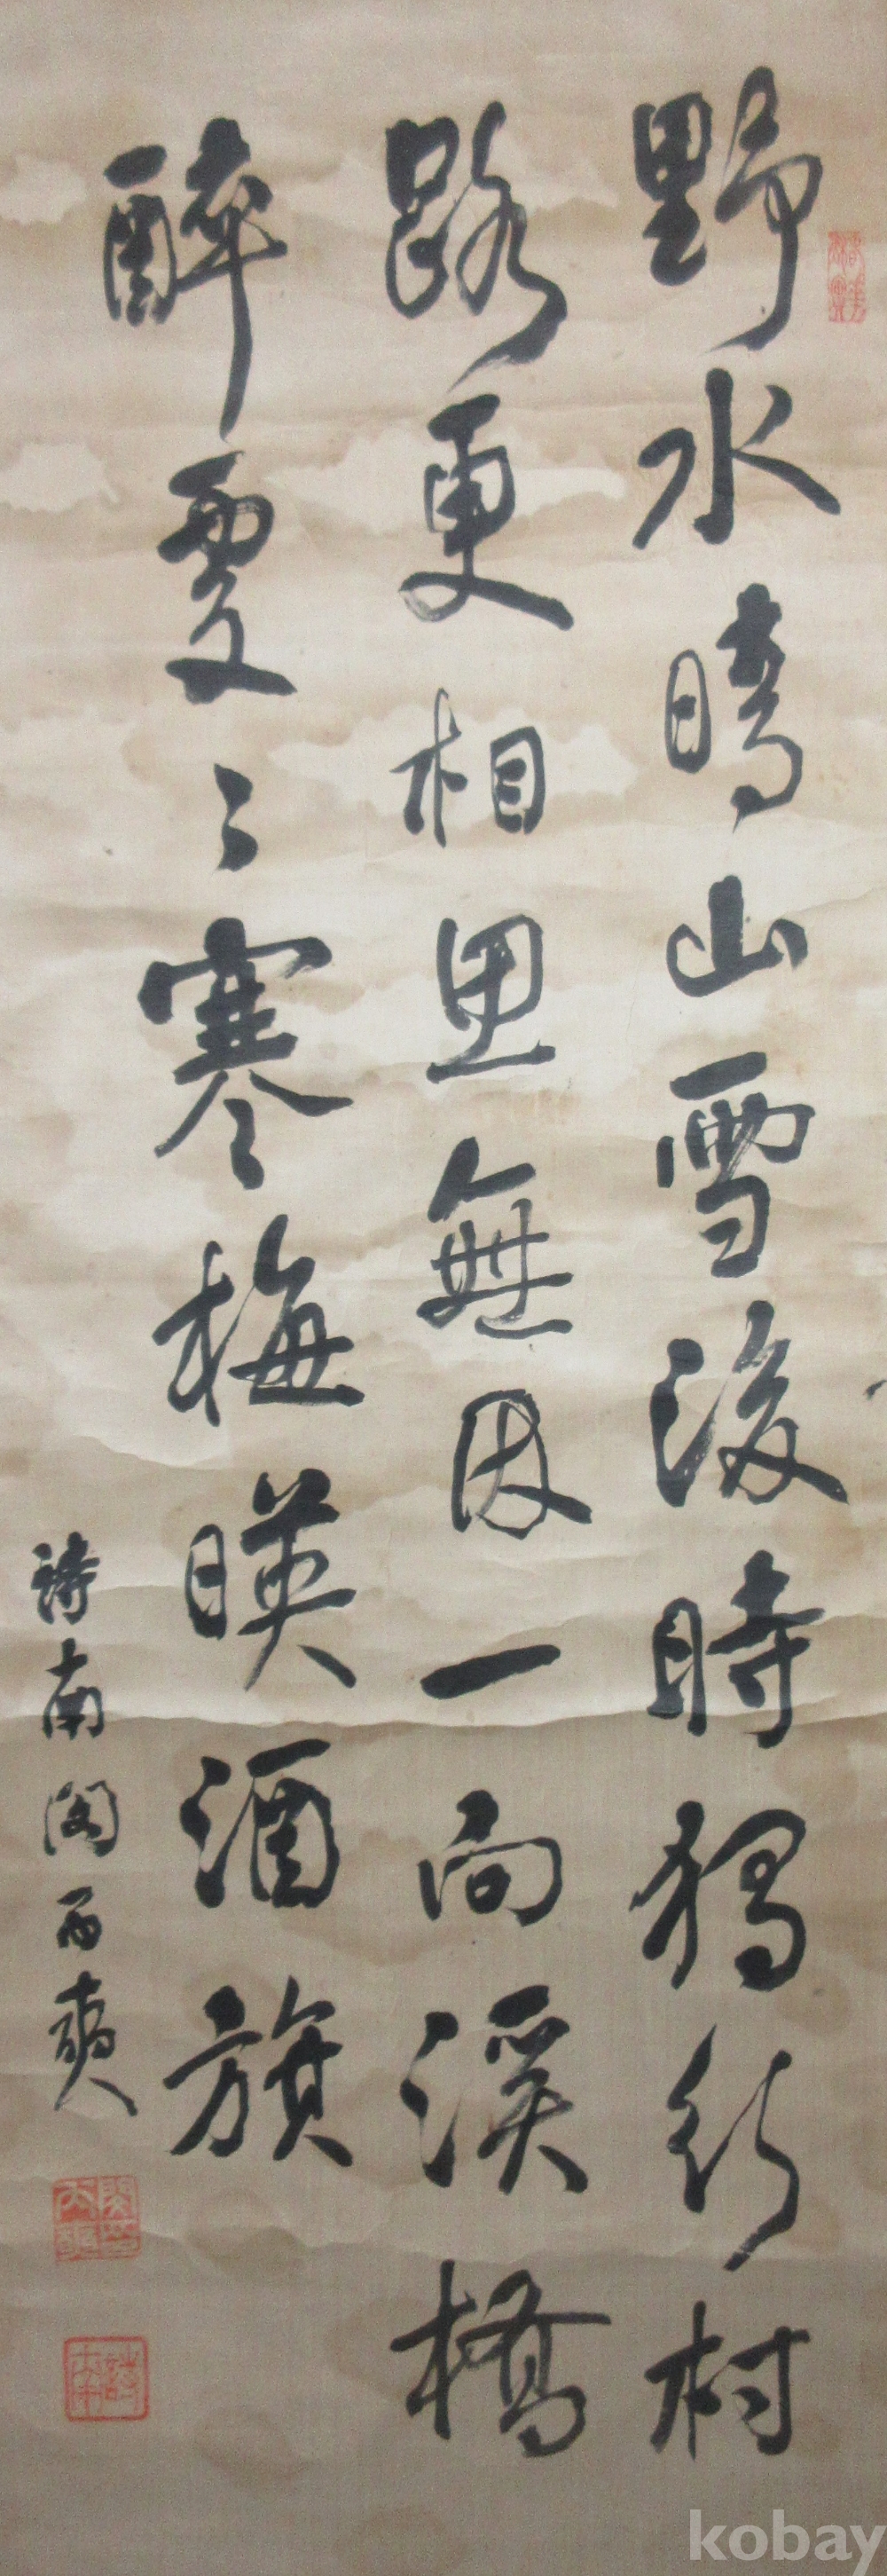 野水晴山雪後時獨行村
路更相思無因一向溪橋
醉處〻寒梅暎酒旗
詩南閔丙奭
詩南
kobay